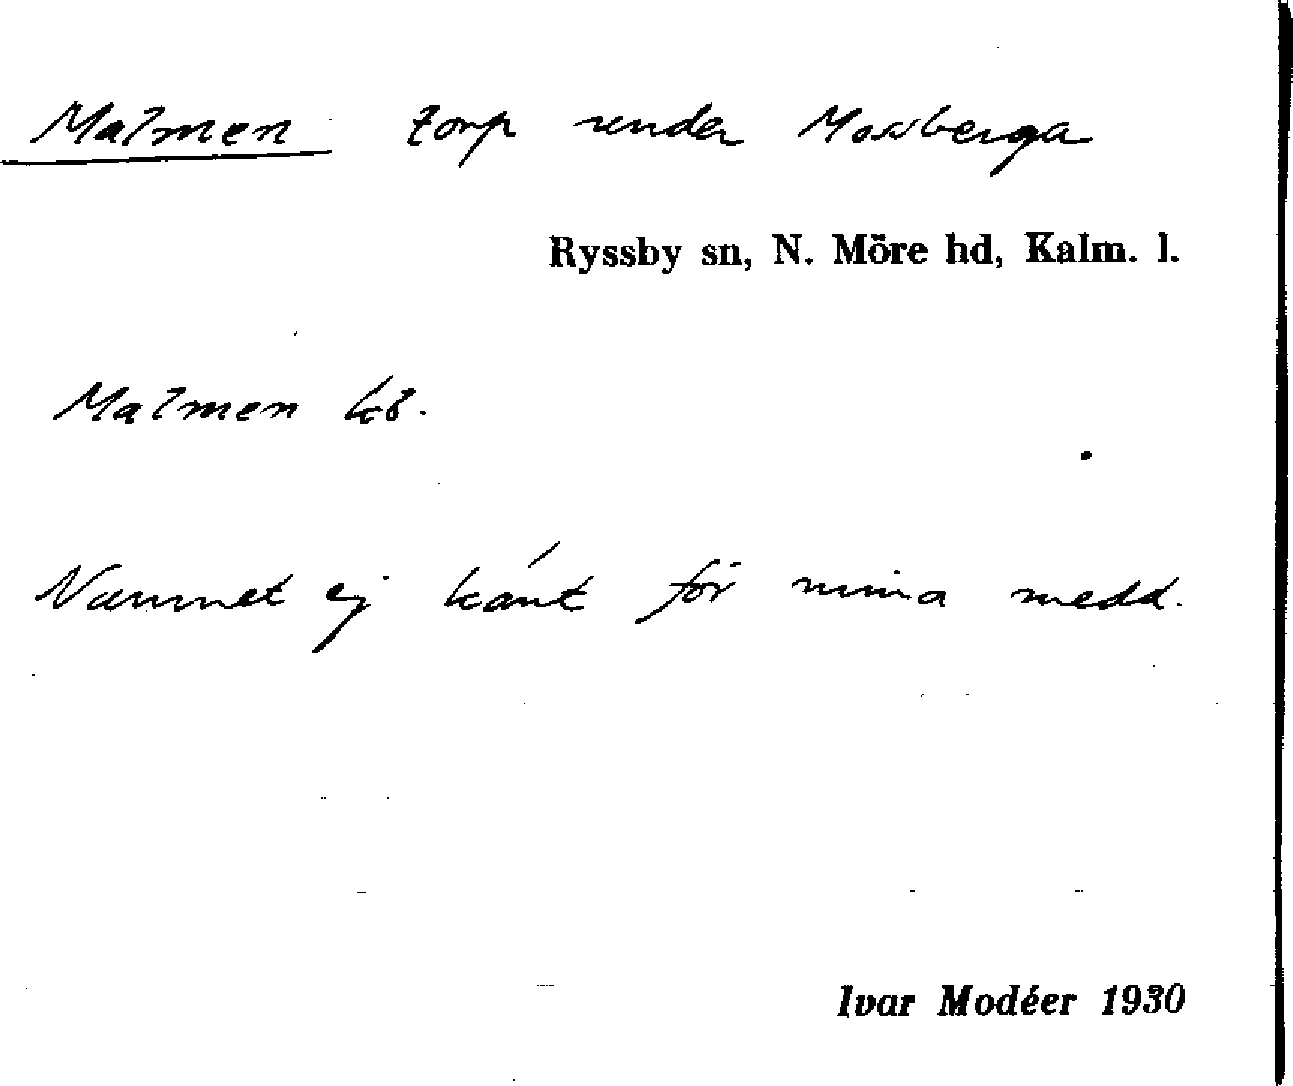 Malmen torp under Mossberga
Ryssby sn, N. Möre hd, Kalm. l.
Malmen kb.
Namnet ej känt för mina medd.
Ivar Modéer 1930